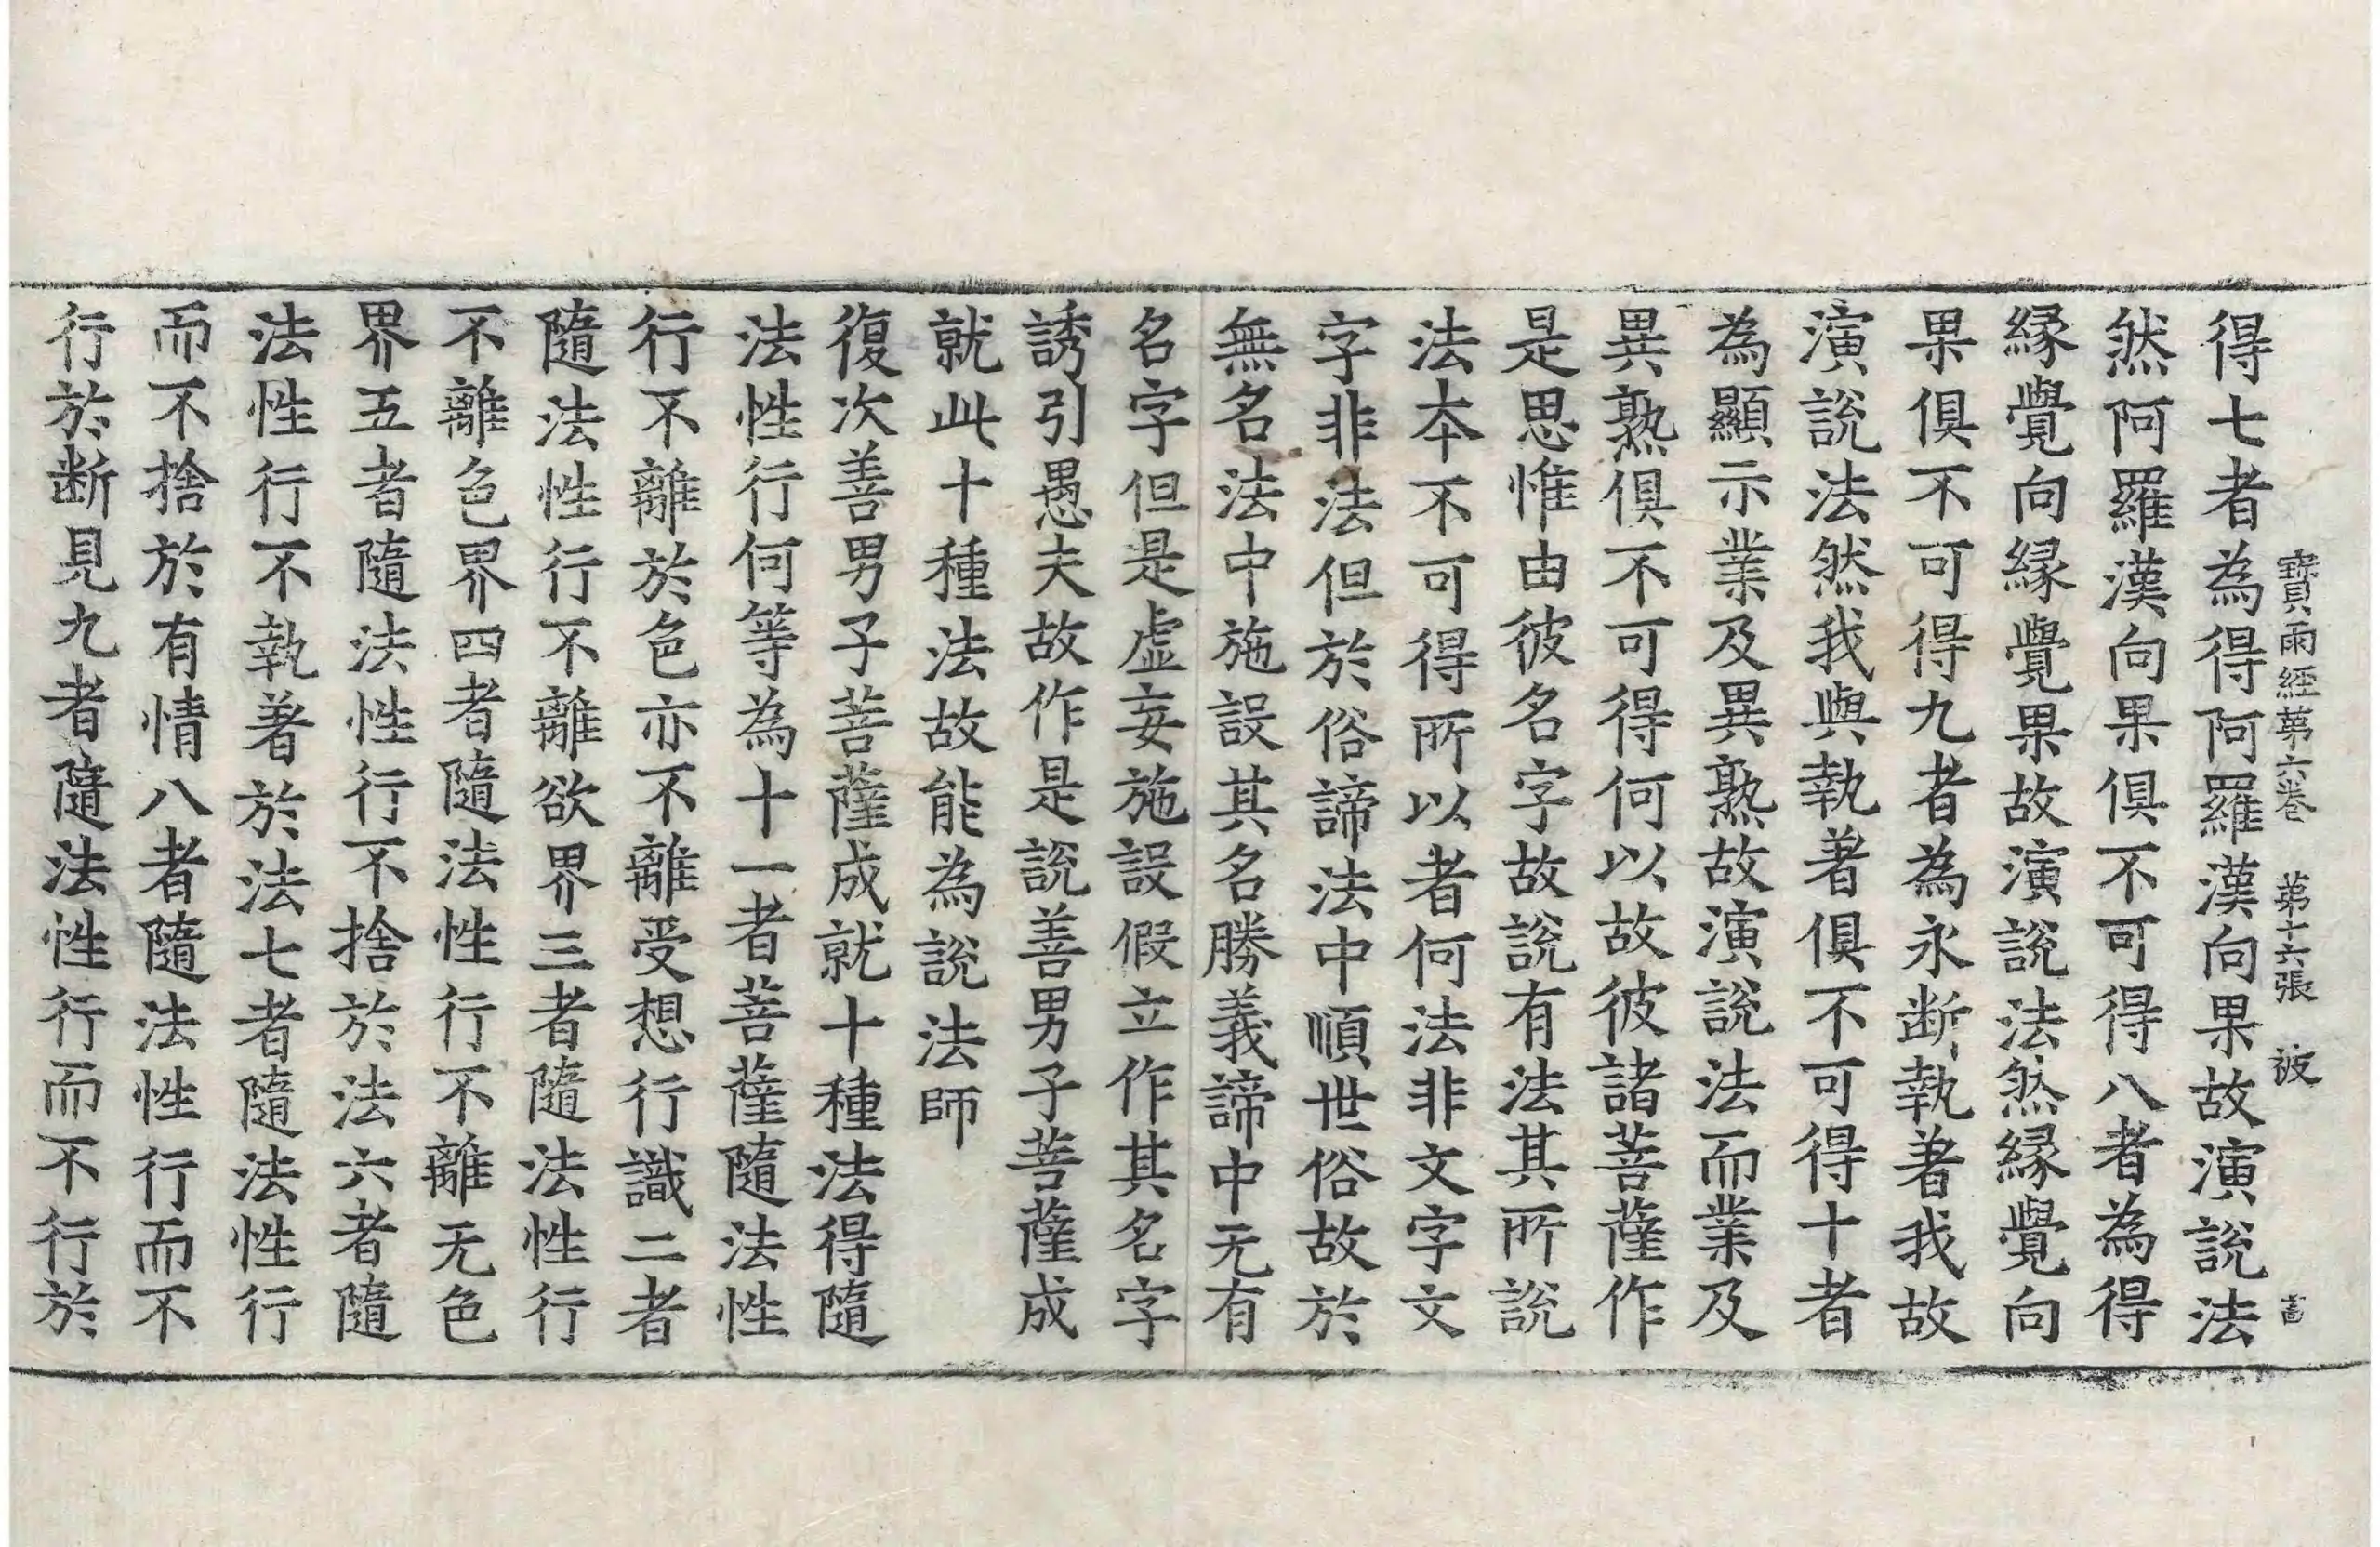 寶雨經苐六卷 苐十六張 被
得七者為得阿羅漢向果故演說法
然阿羅漢向果俱不可得八者為得
縁覺向縁覺果故演說法然縁覺向
果俱不可得九者為永断執著我故
演說法然我與執著俱不可得十者
為顯示業及異熟故演說法而業及
異熟俱不可得何以故彼諸菩薩作
是思惟由彼名字故說有法其所說
法本不可得所以者何法非文字文
字非法但於俗諦法中順世俗故於
無名法中施設其名勝義諦中无有
名字但是虛妄施設假立作其名字
誘引愚夫故作是說善男子菩薩成
就此十種法故能為說法師
復次善男子菩薩成就十種法得隨
法性行何等為十一者菩薩隨法性
行不離於色亦不離受想行識二者
隨法性行不離欲界三者隨法性行
不離色界四者隨法性行不離无色
界五者隨法性行不捨於法六者隨
法性行不執著於法七者隨法性行
而不捨於有情八者隨法性行而不
行於断見九者隨法性行而不行於